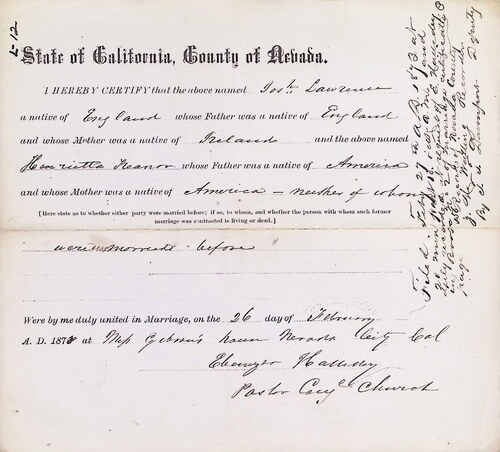 L-12
State of California, County of Nevada.
I HEREBY CERTIFY that the above named Josh. Lawrence
a native of England whose Father was a native of England
and whose Mother was a native of Ireland and the above named
Henrietta Treanor whose Father was a native of America
and whose Mother was a native of America – neither of whom
[Here state as to whether either party were married before; if so, to whom, and whether the person with whom such former
marriage was contracted is living or dead.]
were married before
Were by me duly united in Marriage, on the 26 day of February
A. D. 1873 at Miss Gibson's house Nevada City Cal
Ebenezer Halliday
Pastor Cong. Church
Filed Feby 27th A.D. 1873 at
20 min past o'clock and
duly recorded at request of
in Book of Marriage Certificates
Page Records of Nevada County
Recorder
By Deputy